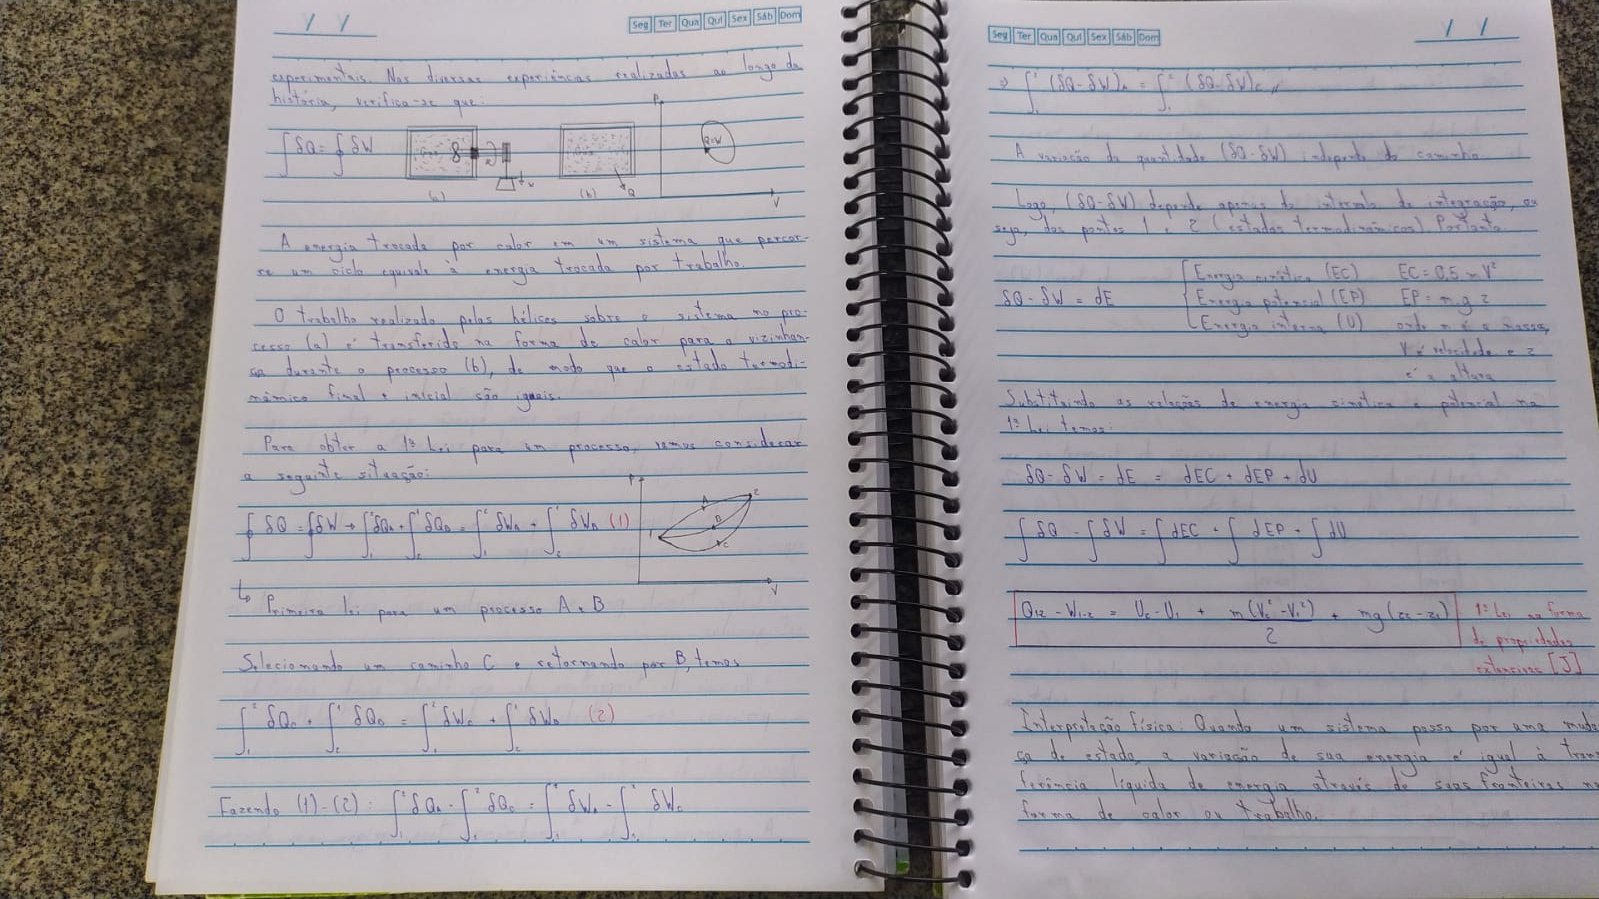 / /
Seg Ter Qua Qui Sex Sáb Dom
experimentais. Nas diversas experiências realizadas ao longo da
história, verifica-se que:
∮ δQ = ∮ δW
Gás
(a)
W
Gás
(b)
Q
P
Q=W
V
A energia trocada por calor em um sistema que percor-
re um ciclo equivale à energia trocada por trabalho.
O trabalho realizado pelas hélices sobre o sistema no pro-
cesso (a) é transferido na forma de calor para a vizinhan-
ça durante o processo (b), de modo que o estado termodi-
nâmico final e inicial são iguais.
Para obter a 1ª Lei para um processo, vamos considerar
a seguinte situação:
∮ δQ = ∮ δW → ∫₁² δQA + ∫₂¹ δQB = ∫₁² δWA + ∫₂¹ δWB (1)
P
1
A
B
C
2
V
↳ Primeira lei para um processo A e B
Selecionando um caminho C e retornando por B, temos
∫₁² δQC + ∫₂¹ δQB = ∫₁² δWC + ∫₂¹ δWB (2)
Fazendo (1)-(2): ∫₁² δQA - ∫₁² δQC = ∫₁² δWA - ∫₁² δWC
Seg Ter Qua Qui Sex Sáb Dom
/ /
⇒ ∫₁² (δQ-δW)A = ∫₁² (δQ-δW)C //
A variação da quantidade (δQ-δW) independe do caminho.
Logo, (δQ-δW) depende apenas do intervalo de integração, ou
seja, dos pontos 1 e 2 (estados termodinâmicos). Portanto
δQ - δW = dE
Energia cinética (EC) EC = 0,5 m V²
Energia potencial (EP) EP = m.g.z
Energia interna (U) onde m é a massa,
V é velocidade e z
é a altura
Substituindo as relações de energia cinética e potencial na
1ª Lei temos:
δQ - δW = dE = dEC + dEP + dU
∫ δQ - ∫ δW = ∫ dEC + ∫ dEP + ∫ dU
Q1-2 - W1-2 = U2 - U1 + m(V2² - V1²)/2 + mg(z2 - z1)
1ª Lei na forma
de propriedades
extensivas [J]
Interpretação física: Quando um sistema passa por uma mudan
ça de estado, a variação de sua energia é igual à trans
ferência líquida de energia através de suas fronteiras na
forma de calor ou trabalho.